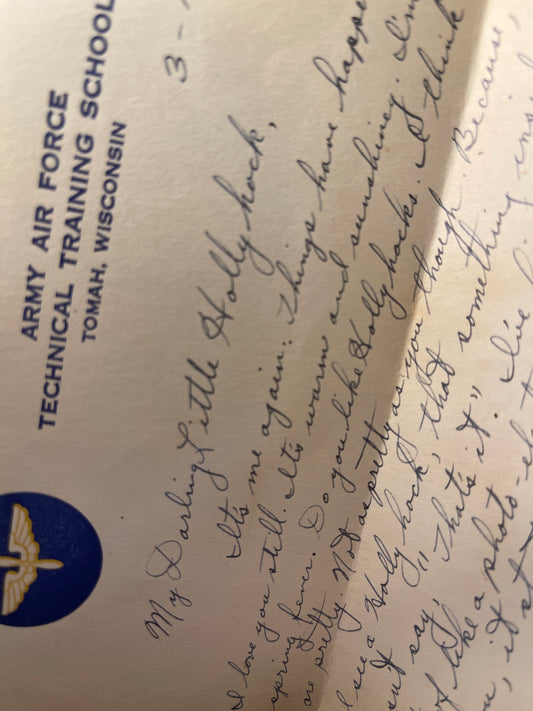 ARMY AIR FORCE
TECHNICAL TRAINING SCHOOL
TOMAH, WISCONSIN
3 -
My Darling Little Hollyhock,
Its me again. Things have happe
I love you still. Its warm and sunshiney. I'm
spring fever. Do you like Hollyhocks. I think
are pretty. Not as pretty as you though. Because,
I see a Hollyhock, that something insi
n't say, "Thats it". I've
of like a photo-el
u, it st